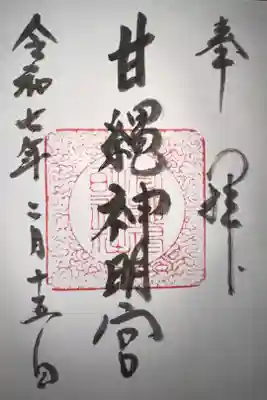 奉拝
甘縄神明宮
令和七年二月十五日